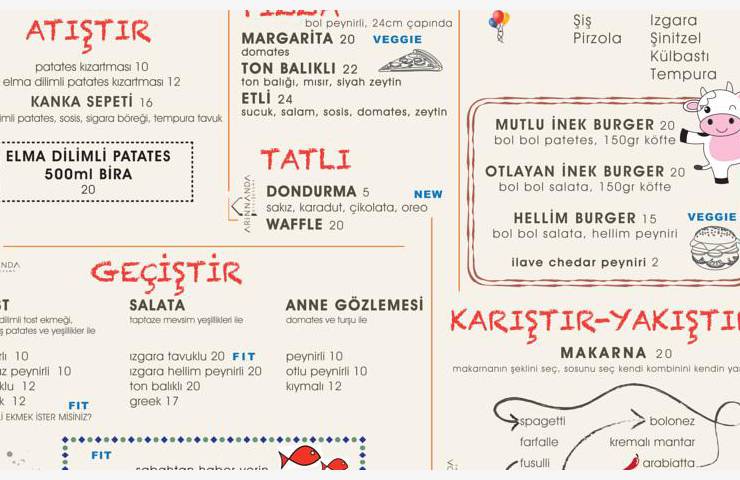 ATIŞTIR
patates kızartması 10
elma dilimli patates kızartması 12
KANKA SEPETİ 16
patates, sosis, sigara böreği, tempura tavuk
ELMA DİLİMLİ PATATES
500ml BİRA
20
bol peynirli, 24cm çapında
MARGARİTA 20 VEGGIE
domates
TON BALIKLI 22
ton balığı, mısır, siyah zeytin
ETLİ 24
sucuk, salam, sosis, domates, zeytin
TATLI
DONDURMA 5 NEW
sakız, karadut, çikolata, oreo
WAFFLE 20
ARINNANDA
Şiş
Pirzola
Izgara
Şinitzel
Külbastı
Tempura
MUTLU İNEK BURGER 20
bol bol patetes, 150gr köfte
OTLAYAN İNEK BURGER 20
bol bol salata, 150gr köfte
HELLİM BURGER 15 VEGGIE
bol bol salata, hellim peyniri
ilave chedar peyniri 2
GEÇİŞTİR
dilimli tost ekmeği,
patates ve yeşillikler ile
10
peynirli 10
12
12 FIT
EKMEK İSTER MİSİNİZ?
SALATA
taptaze mevsim yeşillikleri ile
ızgara tavuklu 20 FIT
ızgara hellim peynirli 20
ton balıklı 20
greek 17
ANNE GÖZLEMESİ
domates ve turşu ile
peynirli 10
otlu peynirli 10
kıymalı 12
FIT
KARIŞTIR-YAKIŞTIR
MAKARNA 20
makarnanın şeklini seç, sosunu seç kendi kombinini kendin
spagetti
farfalle
fusulli
bolonez
kremalı mantar
arabiatta